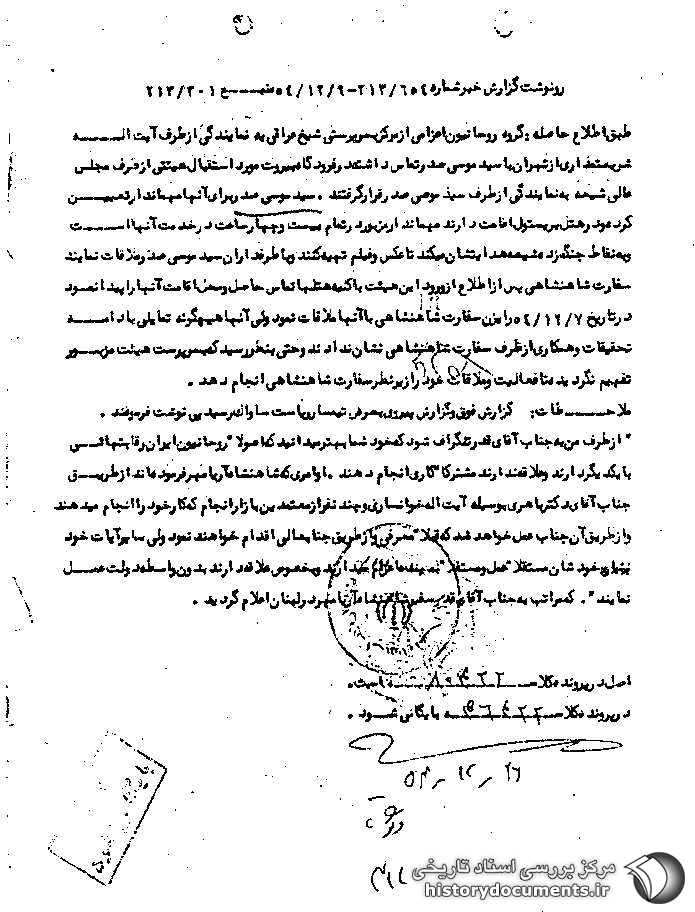 رونوشت گزارش خبر شماره ۲۱۳/۶۵۴-۵۴/۱۲/۹ منبـــع ۲۱۳/۳۰۱
طبق اطلاع حاصله گروه روحانیون اعزامی از مرکز بسرپرستی شیخ عراقی به نمایندگی از طرف آیت الـــه
شریعتمداری از تهران با سید موسی صدر تماس داشتند و فرودگاه بیروت مورد استقبال هیئتی از طرف مجلس
عالی شیعه به نمایندگی از طرف سید موسی صدر قرار گرفتند . سید موسی صدر برای آنها مهماندار تعییـــن
کرده و در هتل بریستول اقامت دارند مهماندار مزبور در تمام بیست و چهار ساعت در خدمت آنها اســت
و به نقاط جنگ زده شیعه هدایتشان میکند تا عکس و فیلم تهیه کنند و با طرفداران سید موسی صدر ملاقات نمایند
سفارت شاهنشاهی پس از اطلاع از ورود این هیئت با کلیه هتلها تماس حاصل و محل اقامت آنها را پیدا نمـود
در تاریخ ۵۴/۱۲/۷ رایزن سفارت شاهنشاهی با آنها ملاقات نمود ولی آنها هیچگونه تمایلی با دامـــه
تحقیقات و همکاری از طرف سفارت شاهنشاهی نشان ندادند و حتی بنظر رسید که بسرپرست هیئت مزبـــور
تفهیم نگردیده تا فعالیت و ملاقات خود را زیر نظر سفارت شاهنشاهی انجام دهد .
ملاحـــظات: گزارش فوق و گزارش پیروی بعرض تیمسار ریاست ساواک رسید پی نوشت فرمودند .
" از طرف من به جناب آقای قدر تلگراف شود که خود شما بهتر میدانید که اصولا" روحانیون ایران رقابتهائـــی
با یکدیگر دارند و علاقه ندارند مشترکا" کاری انجام دهند . اوامری که شاهنشاه آریامهر فرموده اند از طریـــق
جناب آقای دکتر باهری بوسیله آیت اله خوانساری و چند نفر از معتمدین بازار انجام که کار خود را انجام میدهند
و از طریق آن جناب عمل خواهد شد که قبلا" معرفی و از طریق جنابعالی اقدام خواهند نمود ولی سایر آیات خود
بخود شان مستقلا" عمل و مستقلا" نماینده اعزام میدارند و بخصوص علاقه دارند بدون واسطه دولت عمـــل
نمایند" . که مراتب به جناب آقای قدر سفیر شاهنشاه آریامهر در لبنان اعلام گردید .
اصل در پرونده کلاســـه ۸۰۳۲۲ است.
در پرونده کلاســـه بایگانی شـــود .
۵۴/۱۲/۲۶
۳۱۲
مرکز بررسی اسناد تاریخی
historydocuments.ir